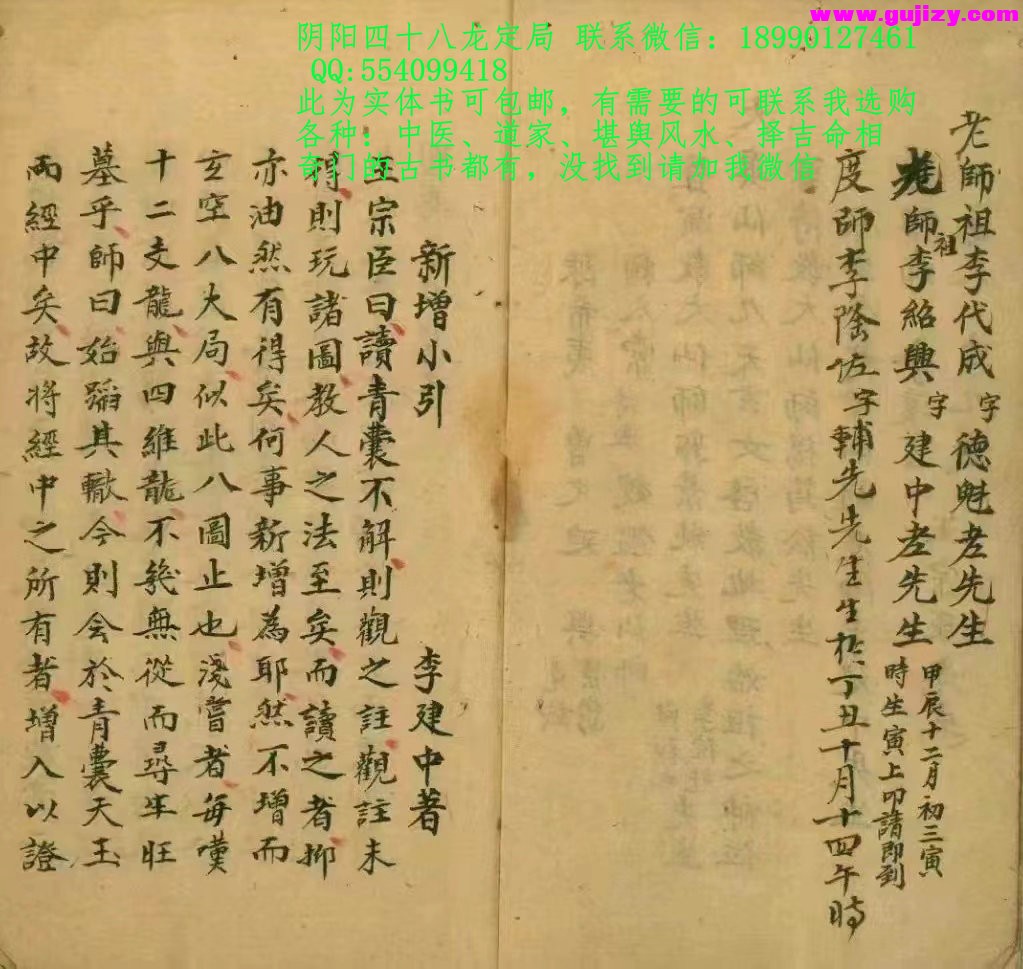 www.gujizy.com
阴阳四十八龙定局 联系微信：18990127461
QQ:554099418
此为实体书可包邮，有需要的可联系我选购
各种：中医、道家、堪舆风水、择吉命相
奇门的古书都有，没找到请加我微信
老師祖李代成字德魁老先生
老師祖李紹興字建中老先生
甲辰十二月初三寅
時生寅上叩請即到
度師李陰佐字輔先先生生於丁丑十月十四午時
新增小引 李建中著
宗臣曰讀青囊不解則觀之註觀註未
得則玩諸圖教人之法至矣而讀之者抑
亦油然有得矣何事新增為耶然不增而
玄空八大局似此八圖止也淺嘗者每嘆
十二支龍與四維龍不幾無從而尋生旺
墓乎師曰始蹈其轍今則会於青囊天玉
兩經中矣故將經中之所有者增入以證